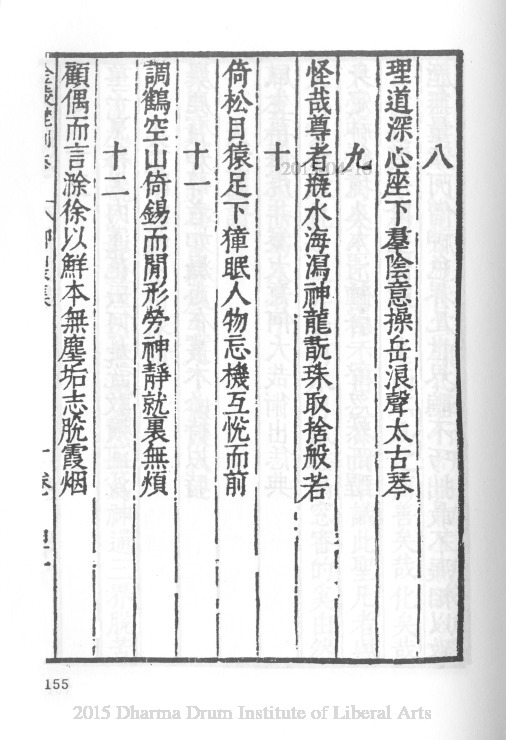 八
理道深心座下羣陰意操岳浪聲太古琴
九
怪哉尊者甁水海瀉神龍翫珠取捨般若
十
倚松目猿足下獐眠人物忘機互悅而前
十一
調鶴空山倚錫而閒形勞神靜就裏無煩
十二
顧偶而言滌徐以鮮本無塵垢志脫霞烟
155
2015 Dharma Drum Institute of Liberal Arts